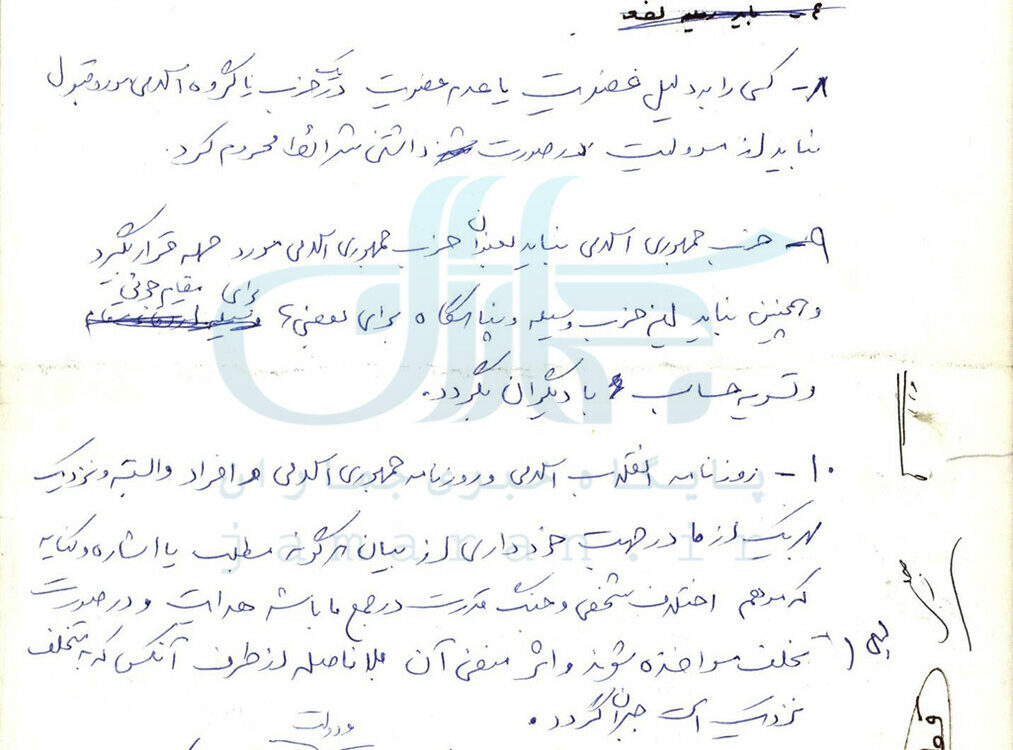 ۸- کسی را به دلیل عضویت یا عدم عضویت در یک حزب یا گروه اسلامی مورد قبول
نباید از مسولیت در صورت داشتن شرائط محروم کرد.
۹- حزب جمهوری اسلامی نباید بعنوان حزب جمهوری اسلامی مورد حمله قرار بگیرد
و همچنین نباید این حزب وسیله و پناهگاه برای بعضی‌ها برای مقام جوئی
و تسویه حساب با دیگران بگردد.
۱۰- روزنامه انقلاب اسلامی و روزنامه جمهوری اسلامی و افراد وابسته و نزدیک
بهریک از ما در جهت خودداری از بیان هرگونه مطلب یا اشاره و کنایه
که موهم اختلاف شخصی و جنگ قدرت در جمع ما باشد هدایت و در صورت
تخلف مواخذه شوند و اثر منفی آن بلافاصله از طرف آنکس که متخلف به
نزدیک است جبران گردد.
جماران
پایگاه خبری جماران
jamaran.ir